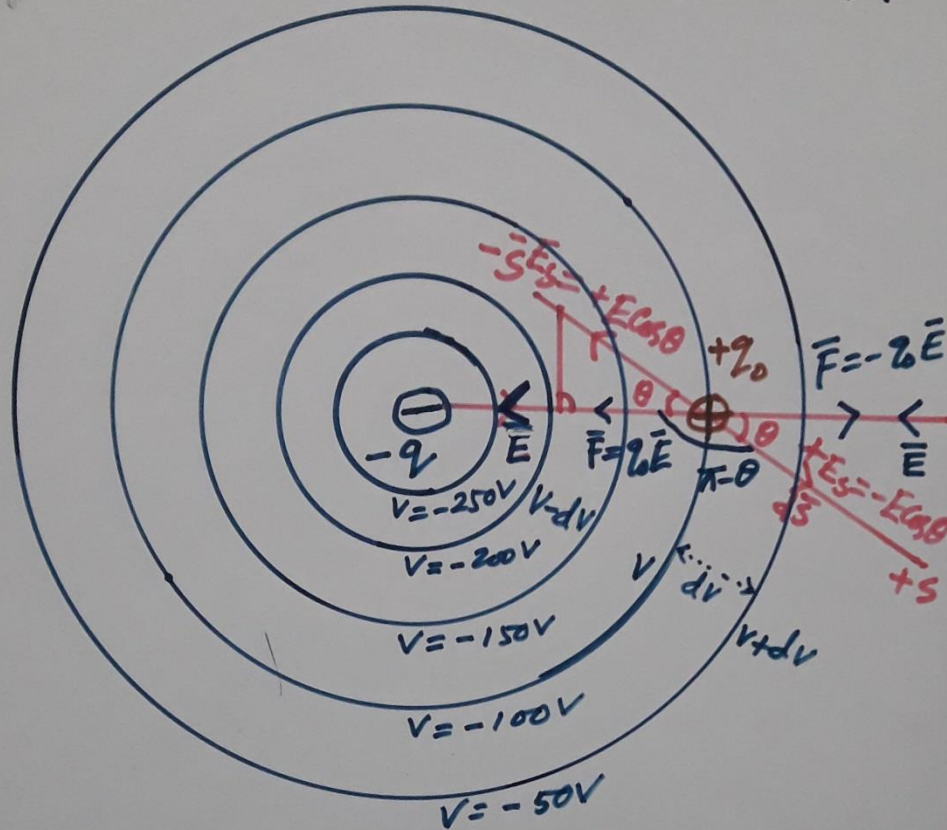 -S̄ E̅s = +E Cosθ
+q₀
F̅ = -q₀E̅
θ
θ
-q
E̅
F̅ = q₀E̅
π-θ
E̅
+Es = -E Cosθ
ds̄
+s
V = -250V
V-dv
V = -200V
V
dv
V = -150V
V+dv
V = -100V
V = -50V